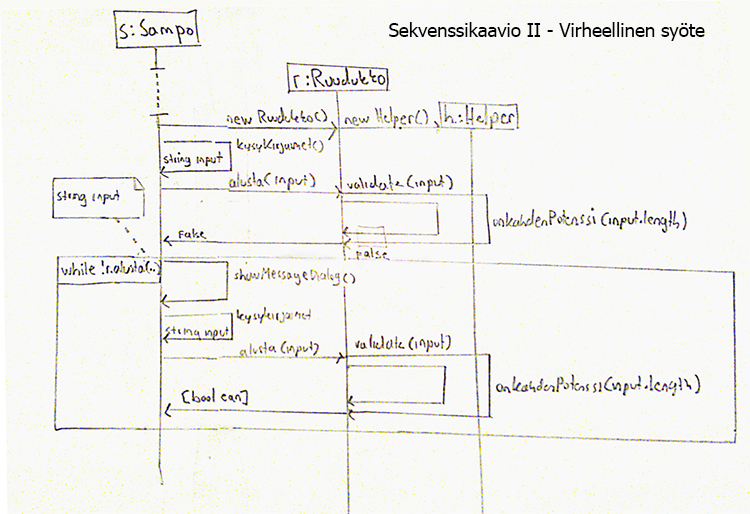 Sekvenssikaavio II - Virheellinen syöte
s:Sampo
r:Ruudukko
new Ruudukko()
new Helper()
h:Helper
kysyKirjaimet()
string input
alusta(input)
validate(input)
string input
onkahdenPotenssi(input.length)
false
false
while !r.alusta(..)
showMessageDialog()
kysykirjaimet
string input
alusta(input)
validate(input)
onkahdenPotenssi(input.length)
[boolean]